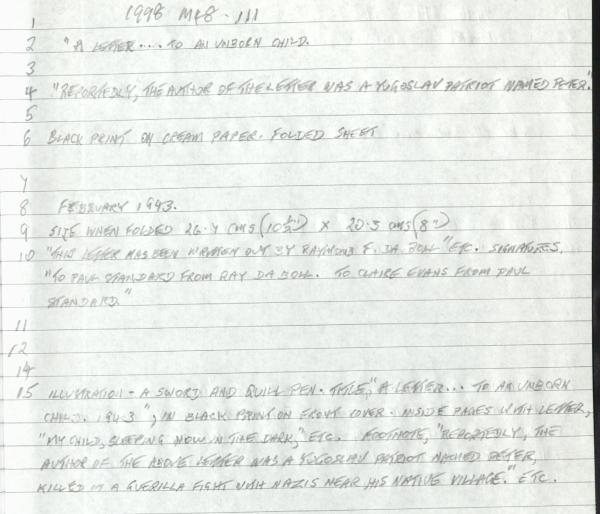 1998 M&8.111
1
2 "A LETTER.... TO AN UNBORN CHILD.
3
4 "REPORTEDLY, THE AUTHOR OF THE LETTER WAS A YUGOSLAV PATRIOT NAMED PETER."
5
6 BLACK PRINT ON CREAM PAPER. FOLDED SHEET
7
8 FEBRUARY 1943.
9 SIZE WHEN FOLDED 26.7 cms (10½") X 20.3 cms (8")
10 "THIS LETTER HAS BEEN WRITTEN OUT BY RAYMOND F. DA BOLL" ETC. SIGNATURES,
"TO PAUL STANDARD FROM RAY DA BOLL. TO CLAIRE EVANS FROM PAUL
STANDARD."
11
12
14
15 ILLUSTRATION - A SWORD AND QUILL PEN. TITLE, "A LETTER... TO AN UNBORN
CHILD. 1943", IN BLACK PRINT ON FRONT COVER. INSIDE PAGES WITH LETTER,
"MY CHILD, SLEEPING NOW IN THE DARK," ETC. FOOTNOTE, "REPORTEDLY, THE
AUTHOR OF THE ABOVE LETTER WAS A YUGOSLAV PATRIOT NAMED PETER,
KILLED IN A GUERILLA FIGHT WITH NAZIS NEAR HIS NATIVE VILLAGE." ETC.